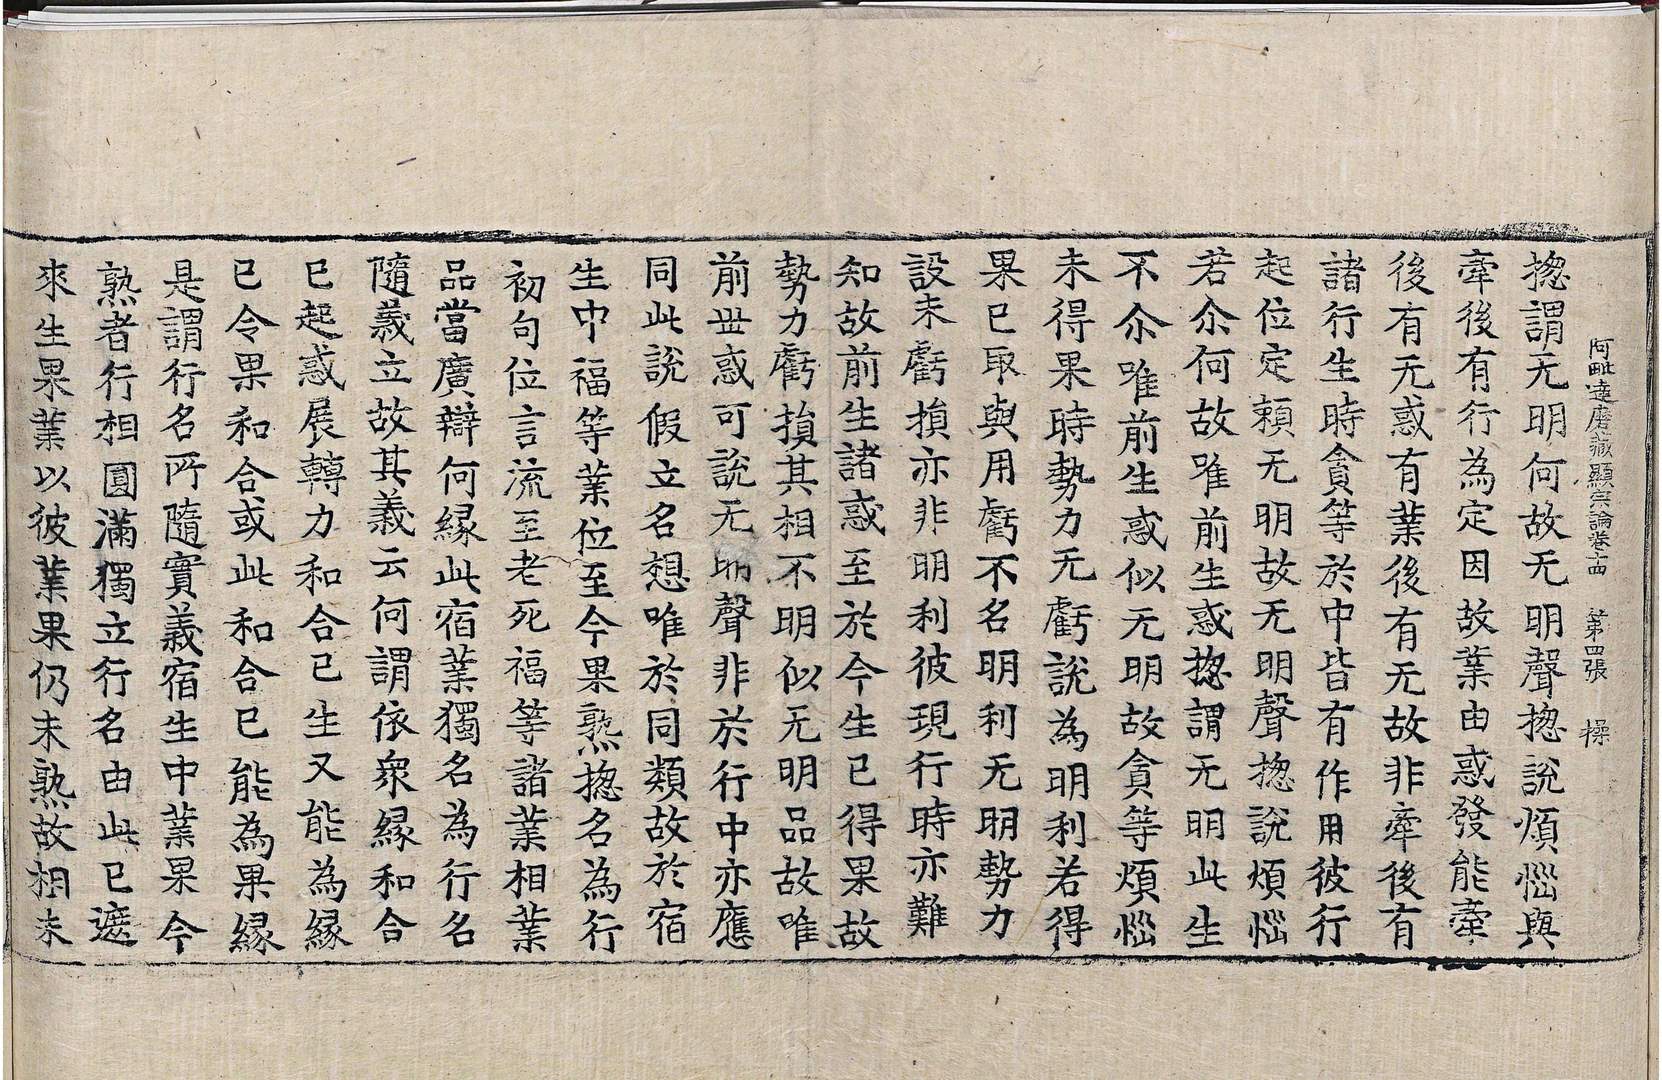 阿毗達磨藏顯宗論卷十四 第四張 操
揔謂无明何故无明聲揔說煩惱與
牽後有行為定因故業由惑發能牽
後有无惑有業後有无故非牽後有
諸行生時貪等於中皆有作用彼行
起位定賴无明故无明聲揔說煩惱
若尒何故唯前生惑揔謂无明此生
不尒唯前生惑似无明故貪等煩惱
未得果時勢力无虧說為明利若得
果已取與用虧不名明利无明勢力
設未虧損亦非明利彼現行時亦難
知故前生諸惑至於今生已得果故
勢力虧損其相不明似无明品故唯
前世惑可說无明聲非於行中亦應
同此說假立名想唯於同類故於宿
生中福等業位至今果熟揔名為行
初句位言流至老死福等諸業相業
品當廣辯何緣此宿業獨名為行名
隨義立故其義云何謂依衆緣和合
已起或展轉力和合已生又能為緣
已令果和合或此和合已能為果緣
是謂行名所隨實義宿生中業果今
熟者行相圓滿獨立行名由此已遮
來生果業以彼業果仍未熟故相未